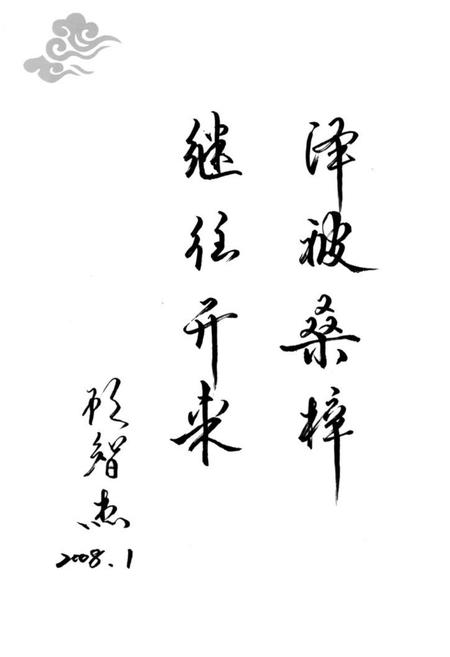 泽被桑梓
继往开来
段智杰
2008.1